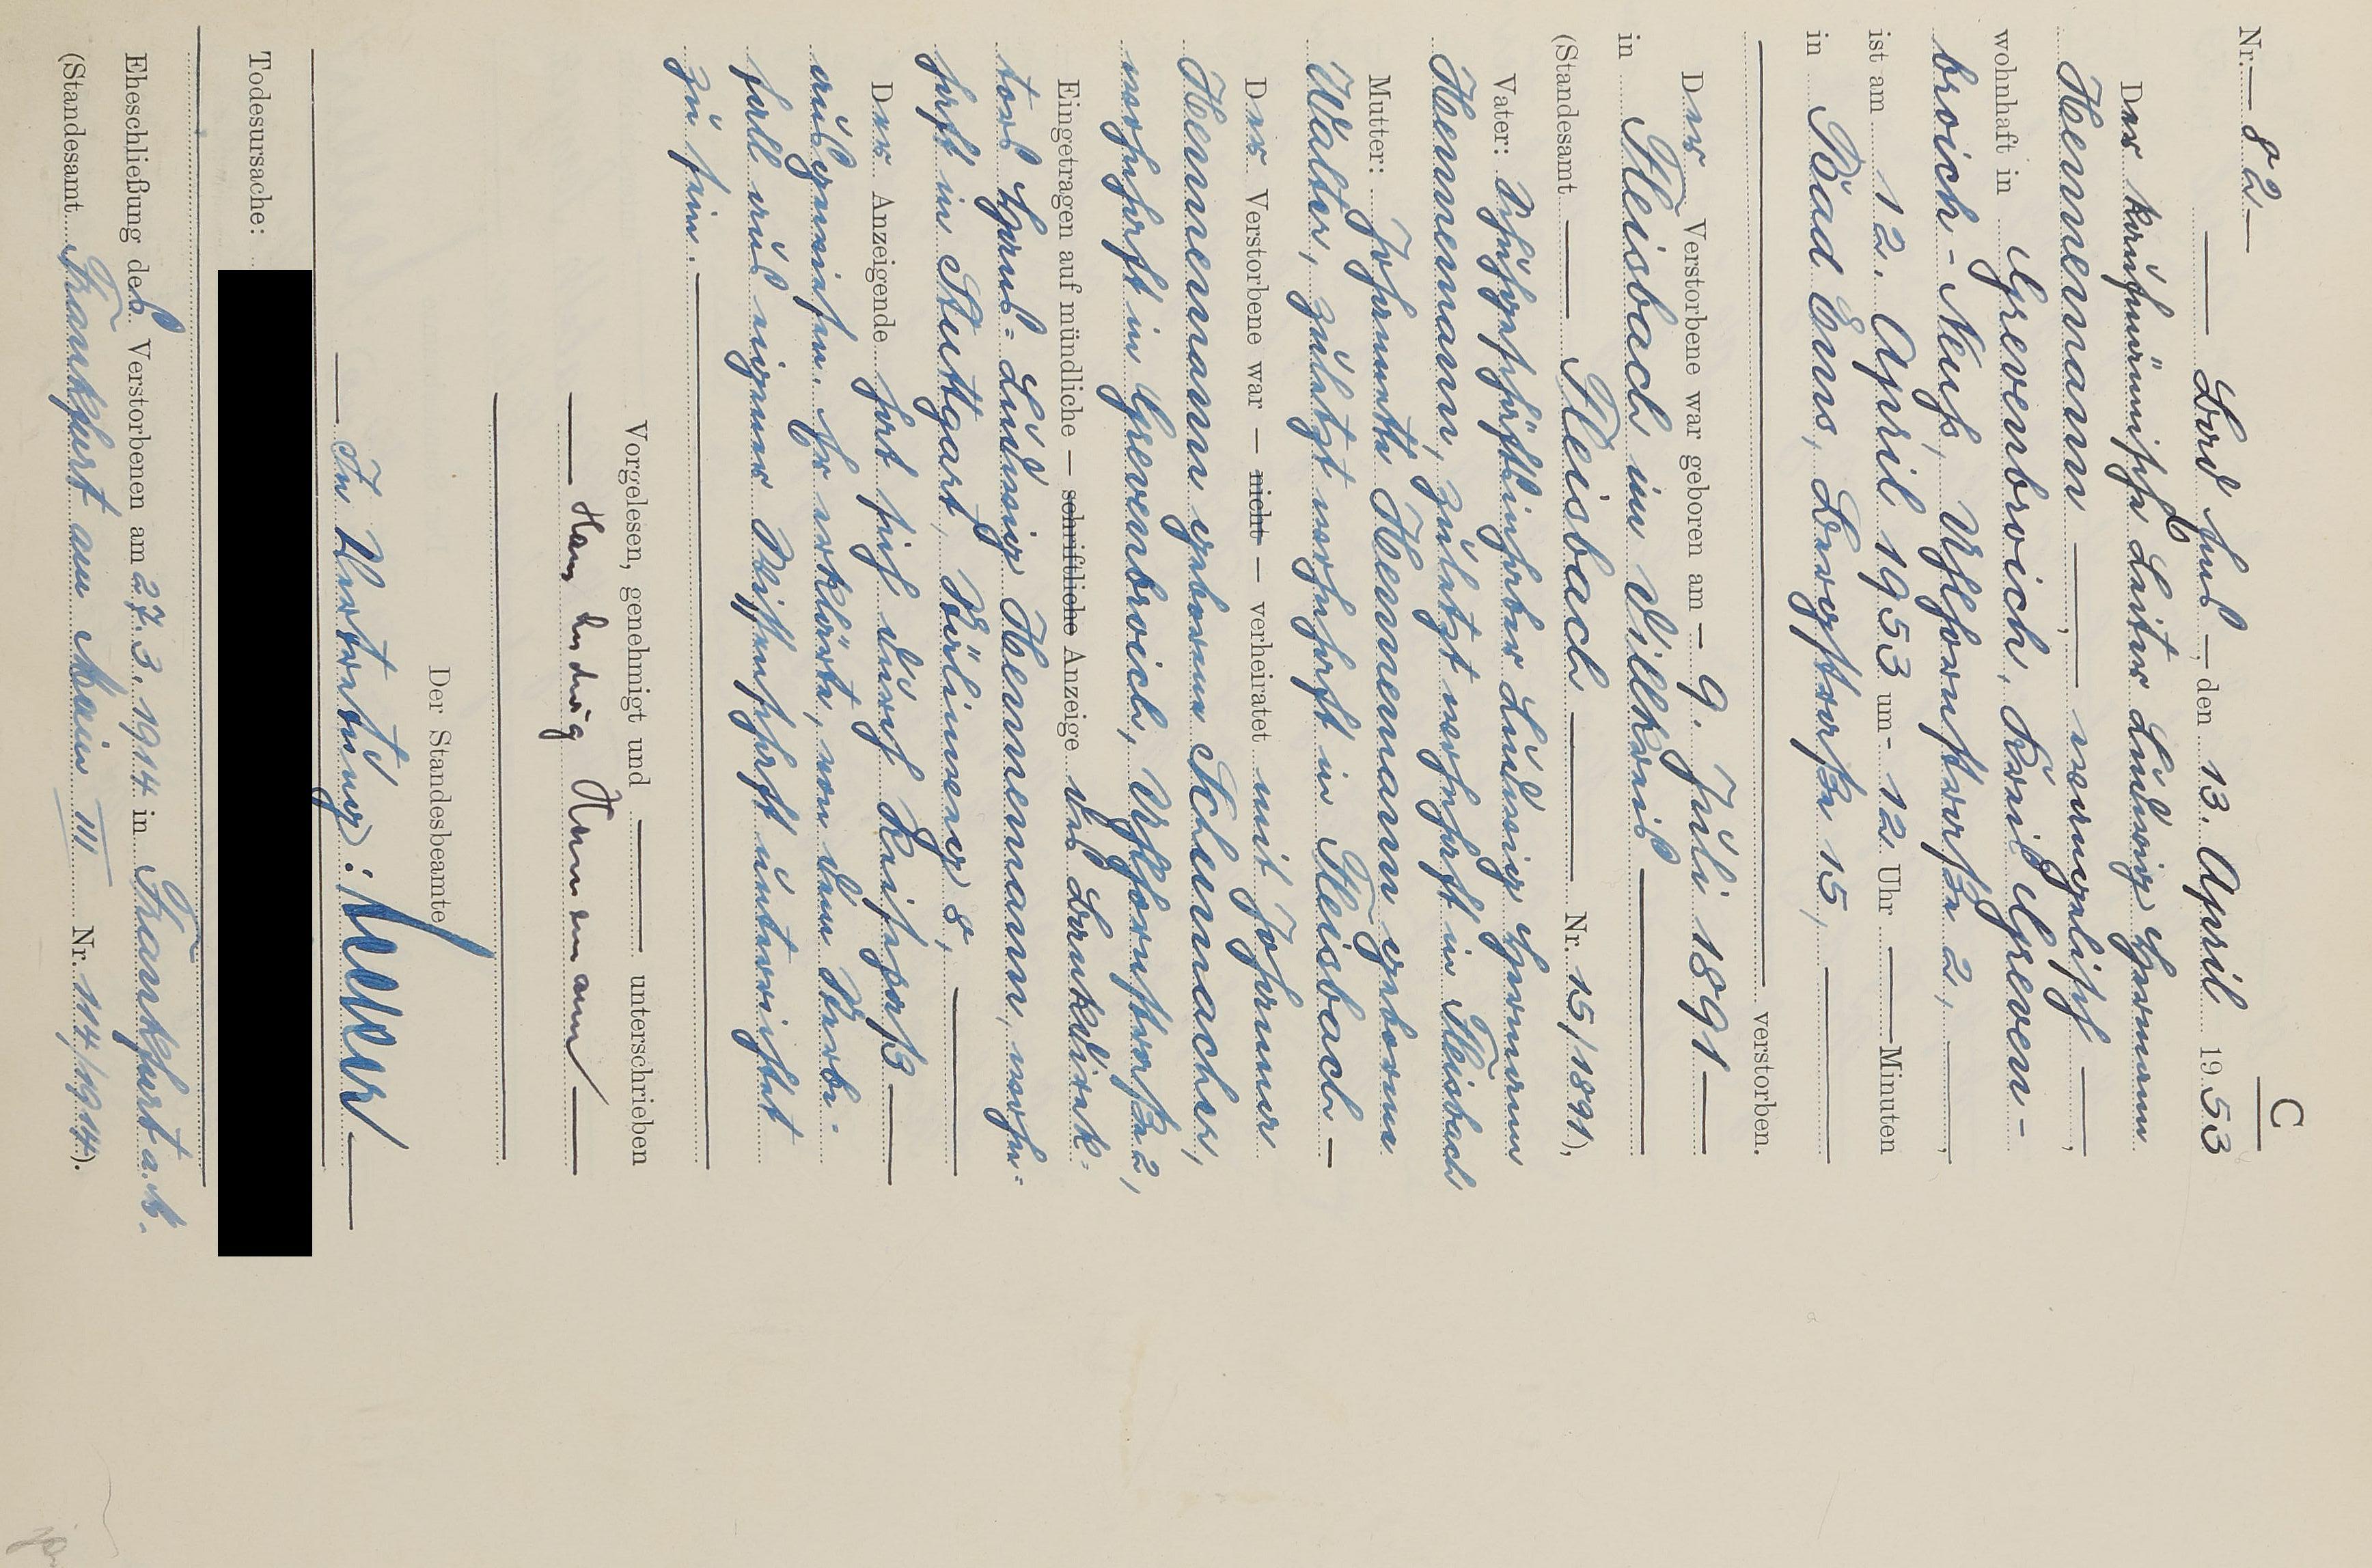 C
Nr. 82
Bad Ems, den 13. April 1953
Der kaufmännische Leiter Ludwig Hermann
Hennemann, evangelisch,
wohnhaft in Grevenbroich, Kreis Greven-
broich-Neuß, Uhlhornstraße 2,
ist am 12. April 1953 um 12 Uhr Minuten
in Bad Ems, Bergstraße 15,
verstorben.
Der Verstorbene war geboren am 9. Juli 1891
in Fleisbach im Dillkreis
(Standesamt Fleisbach Nr. 15/1891).
Vater: Ludwig Hermann
Hennemann, zuletzt wohnhaft in Fleisbach
Mutter: Johannette Hennemann geborene
Walter, zuletzt wohnhaft in Fleisbach
Der Verstorbene war — nicht — verheiratet mit Johanna
Hennemann geborene Schumacher,
wohnhaft in Grevenbroich, Uhlhornstraße 2,
Eingetragen auf mündliche — schriftliche Anzeige des Bankdirek-
tors Hans-Ludwig Hennemann, wohn-
haft in Stuttgart, 8,
Der Anzeigende hat sich durch Reisepaß
ausgewiesen. Er erklärte, von dem Sterbe-
fall aus eigener Wissenschaft unterrichtet
zu sein.
Vorgelesen, genehmigt und unterschrieben
Hans Ludwig Hennemann
Der Standesbeamte
In Vertretung:
Todesursache:
Eheschließung des Verstorbenen am 27.3.1914 in Frankfurt a.M.
(Standesamt Frankfurt am Main III Nr. 114/1914).